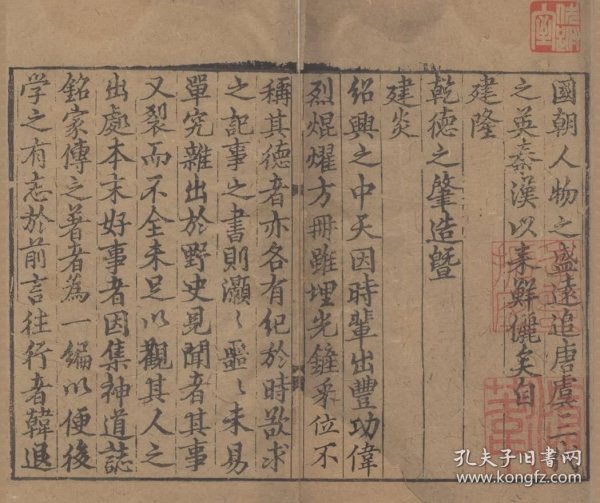 國朝人物之盛遠追唐虞三
之英秦漢以来鮮儷矣自
建隆
乾德之肇造曁
建炎
紹興之中天因時輩出豐功偉
烈焜燿方冊雖埋光鏟采位不
稱其德者亦各有紀於時歘求
之記事之書則灝〻噩〻未易
單究雜出於野史見聞者其事
又裂而不全未足以觀其人之
出處本末好事者因集神道誌
銘家傳之著者為一編以便後
学之有志於前言往行者韓退
孔夫子旧书网
www.kongfz.com